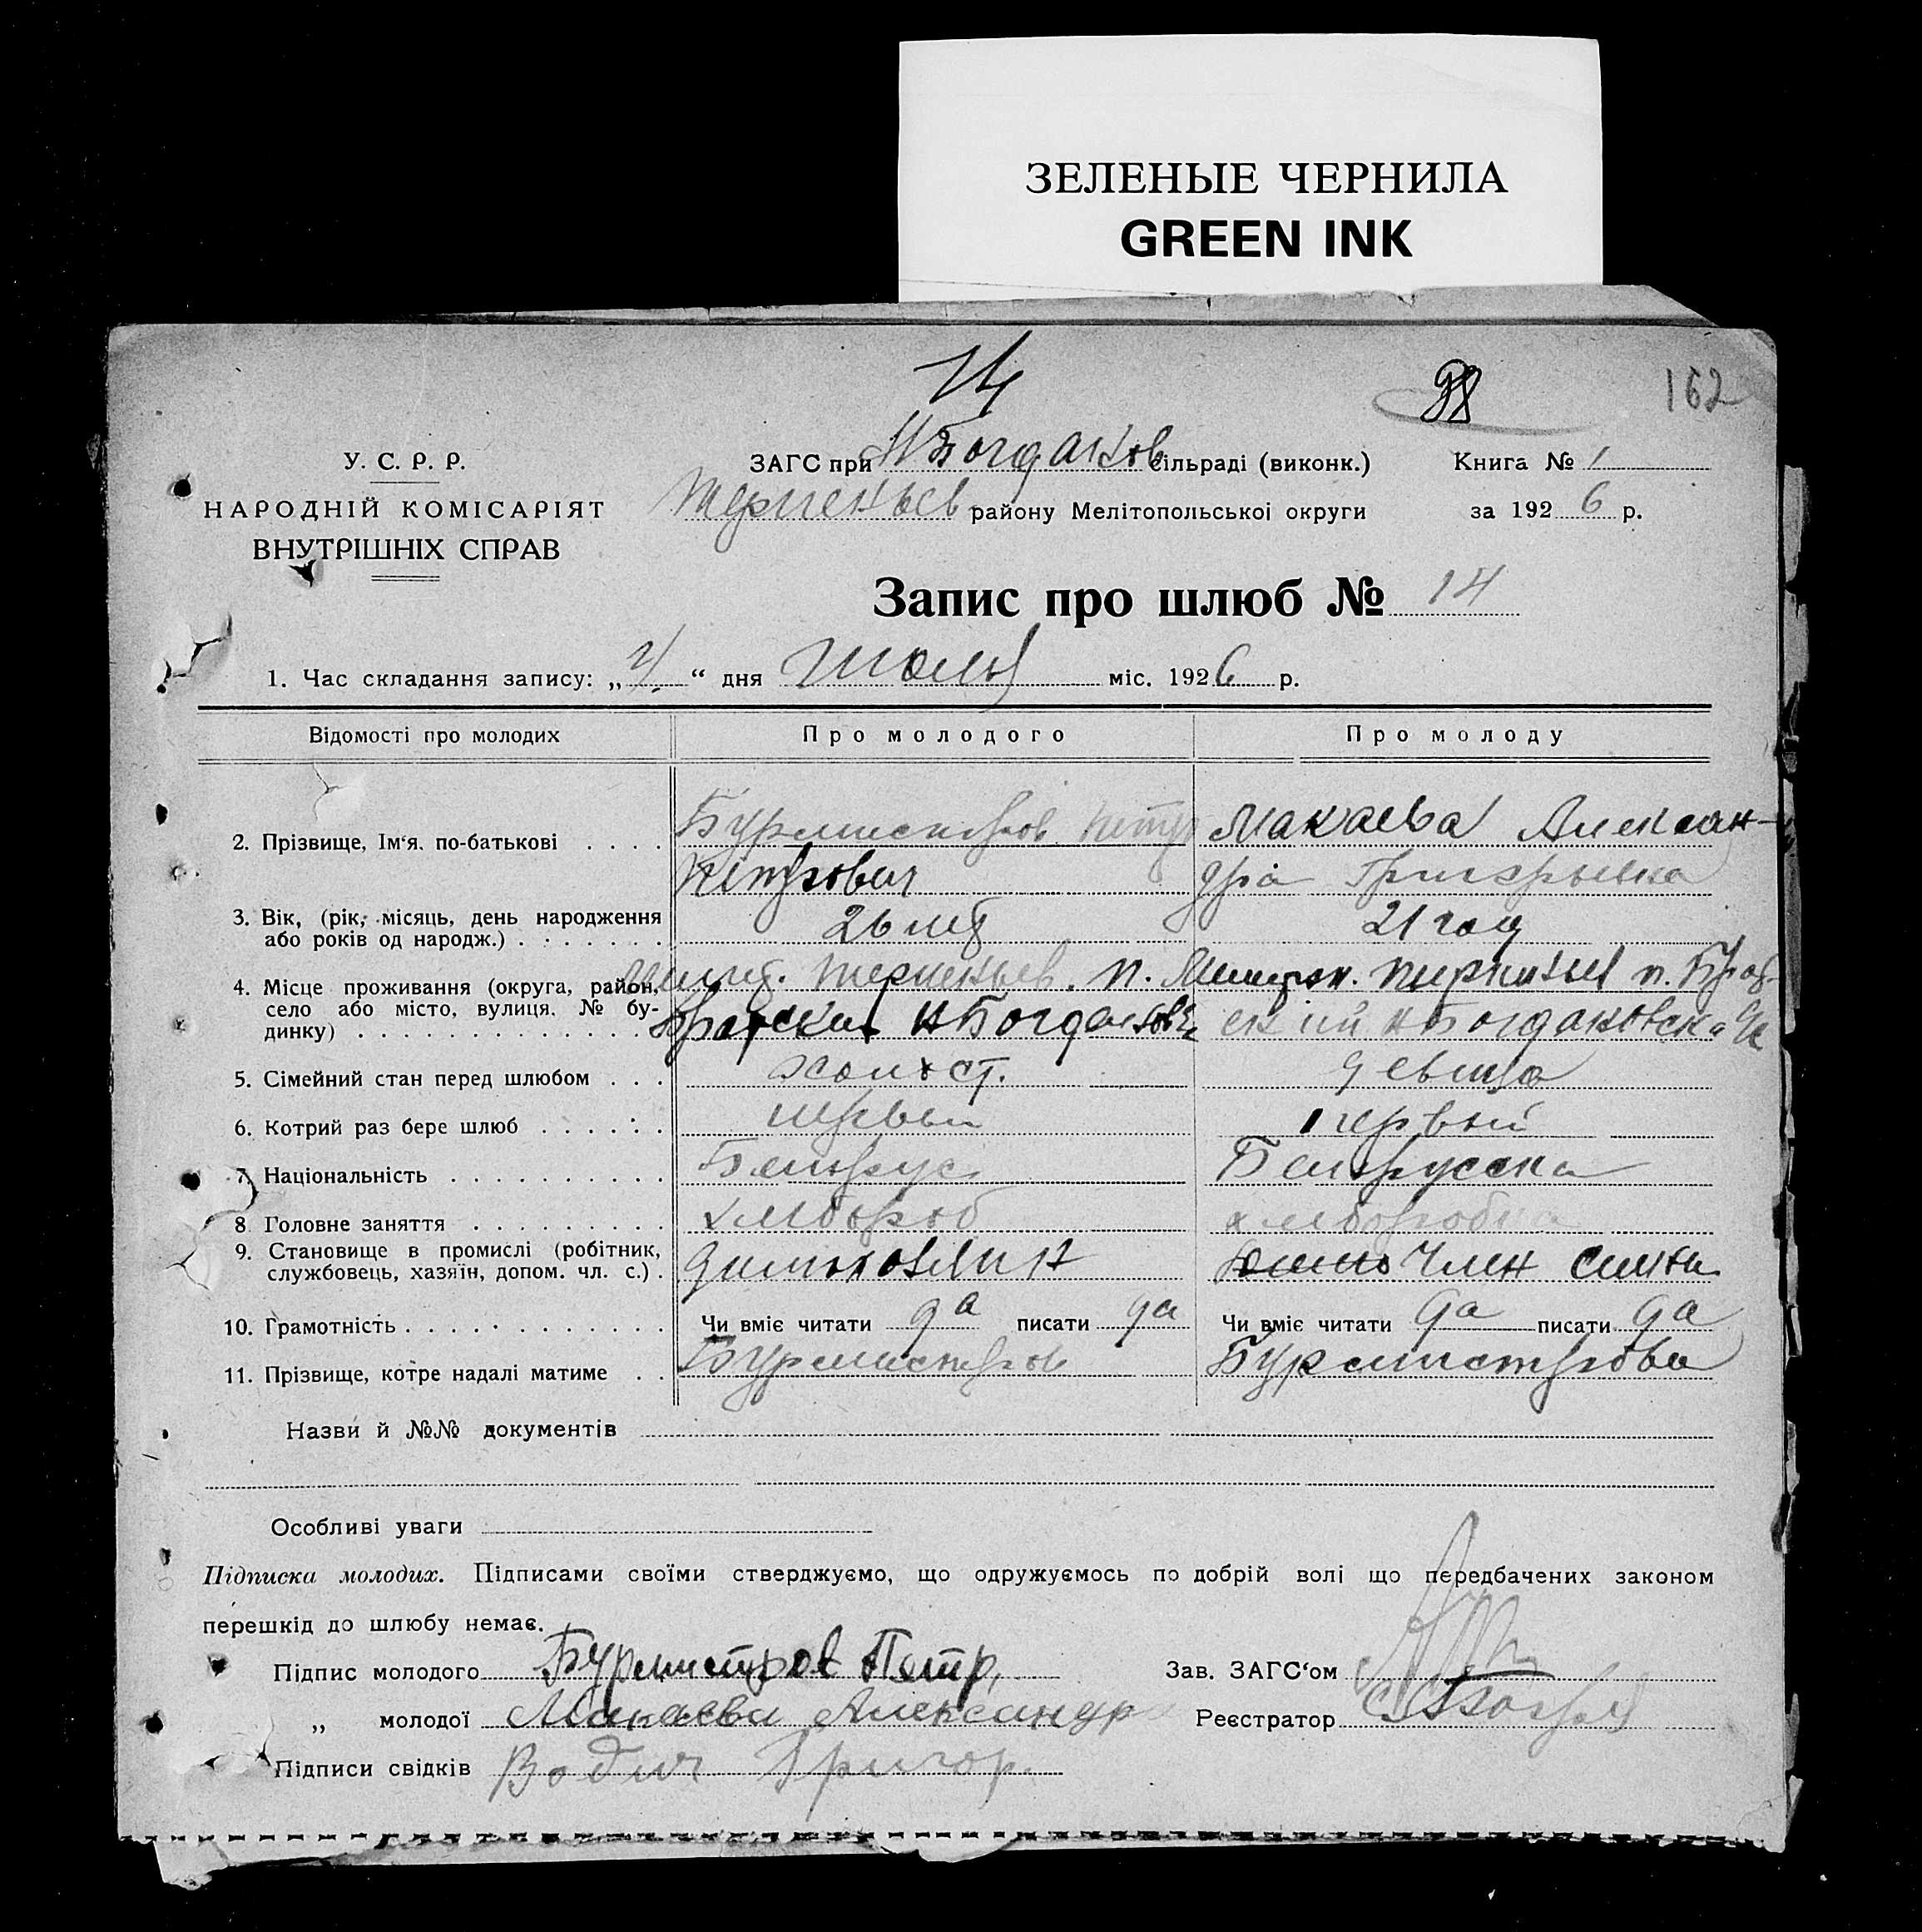 ЗЕЛЕНЫЕ ЧЕРНИЛА
GREEN INK
14
98
162
У. С. Р. Р.
НАРОДНІЙ КОМІСАРІЯТ
ВНУТРІШНІХ СПРАВ
ЗАГС при НБогданов сільраді (виконк.)
Терпеньев району Мелітопольської округи
Книга № 1
за 1926 р.
Запис про шлюб № 14
1. Час складання запису: „4“ дня Июля міс. 1926 р.
Відомості про молодих Про молодого Про молоду
2. Прізвище, Ім‘я, по-батькові . . . . Бурмистров Петр Макаева Алексан-
Петрович дра Григорьевна
3. Вік, (рік, місяць, день народження
або років од народж.) . . . . . . . 26 лет 21 год
4. Місце проживання (округа, район,
село або місто, вулиця, № бу-
динку) . . . . . . . . . . . . . .
Мелит. Терпеньев. п. Мелитоп. Терпеньев п. Брод-
НБогдановск ский НБогдановска
5. Сімейний стан перед шлюбом . . . холост. девица
6. Котрий раз бере шлюб . . . . . . первый первый
7. Національність . . . . . . . . . . Белорус Белорусска
8. Головне заняття . . . . . . . . . хлебороб хлеборобка
9. Становище в промислі (робітник,
службовець, хазяїн, допом. чл. с.) . домохозяин Член семьи
10. Грамотність . . . . . . . . . . . . Чи вміє читати да писати да Чи вміє читати да писати да
11. Прізвище, котре надалі матиме . . Бурмистров Бурмистрова
Назви й №№ документів
Особливі уваги
Підписка молодих. Підписами своїми стверджуємо, що одружуємось по добрій волі що передбачених законом
перешкід до шлюбу немає.
Підпис молодого Бурмистров Петр,
„ молодої Макаева Александра
Підписи свідків Водич Григор.
Зав. ЗАГС‘ом
Реєстратор